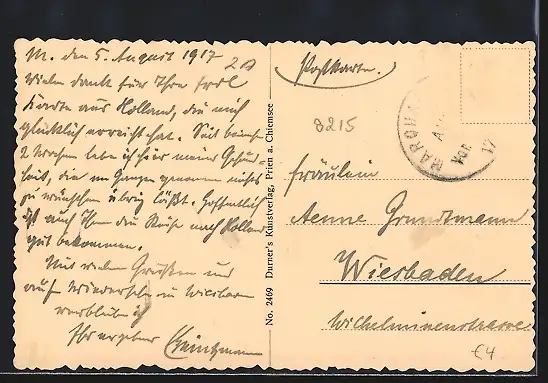 M. den 5. August 1917
Vielen Dank für Ihre frdl.
Karte aus Holland, die mich
glücklich erreicht hat. Seit beinahe
2 Wochen lebe ich hier meiner Gesund-
heit, die im Ganzen genommen nichts
zu wünschen übrig läßt. Hoffentlich
ist auch Ihnen die Reise nach Holland
gut bekommen.
Mit vielen Grüßen und
auf Wiedersehen in Wiesbaden
verbleibe ich
Ihr ergebener
No. 2469 Durner's Kunstverlag, Prien a. Chiemsee
Postkarte.
3215
MARQU
Vor.
17
Fräulein
Aenne Grundtmann
Wiesbaden
Wilhelminenstrasse
€4